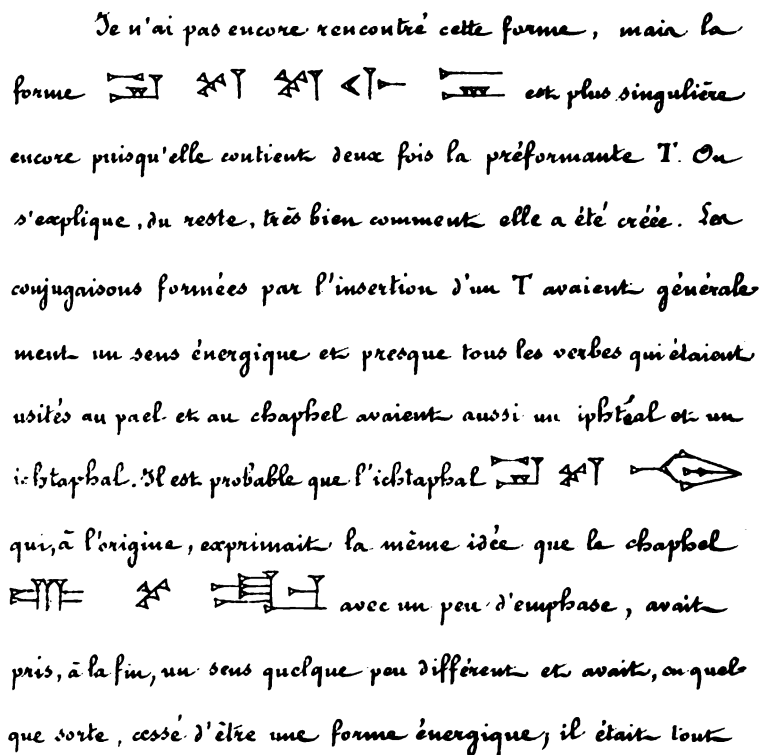 Je n'ai pas encore rencontré cette forme, mais la
forme est plus singulière
encore puisqu'elle contient deux fois la préformante T. On
s'explique, du reste, très bien comment elle a été créée. Les
conjugaisons formées par l'insertion d'un T avaient générale
ment un sens énergique et presque tous les verbes qui étaient
usités au pael et au chaphel avaient aussi un iphtéal et un
ichtaphal. Il est probable que l'ichtaphal
qui, à l'origine, exprimait la même idée que le chaphel
avec un peu d'emphase, avait
pris, à la fin, un sens quelque peu différent et avait, en quel
que sorte, cessé d'être une forme énergique; il était tout